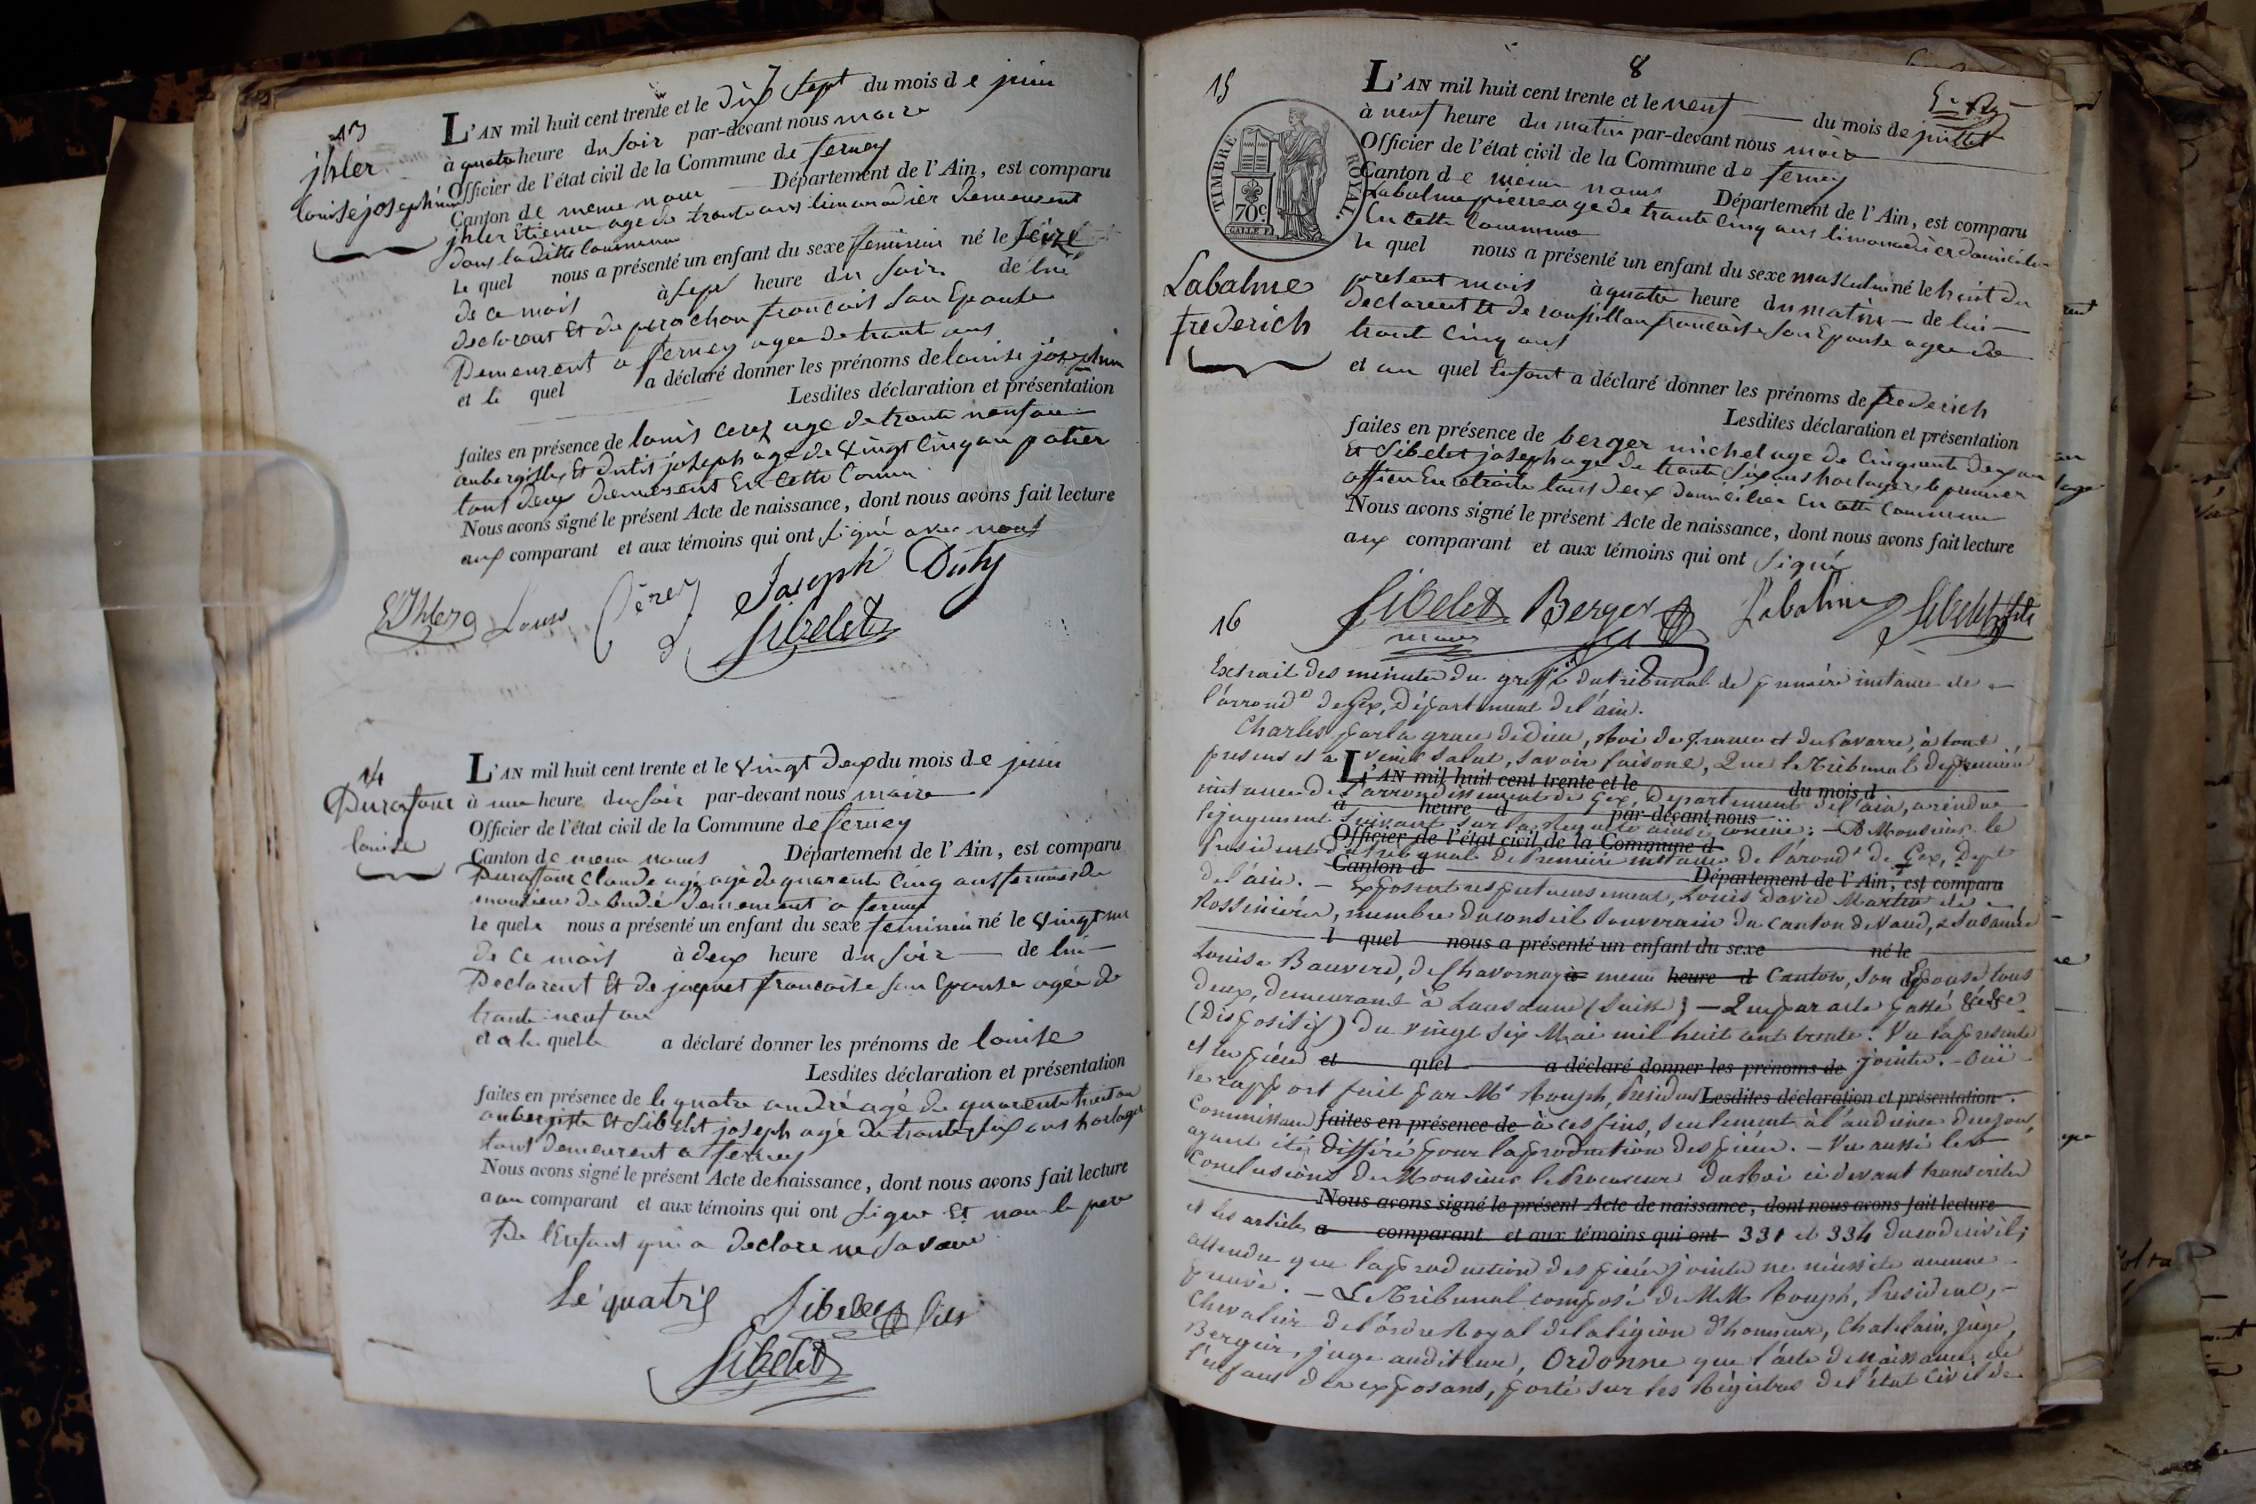 13
jhler
louise josephine
L'AN mil huit cent trente et le dix sept du mois de juin
à quatre heure du soir par-devant nous maire
Officier de l'état civil de la Commune de ferney
Canton de meme nom Département de l'Ain, est comparu
jhler Etienne age de trante ans limonadier demeurent
dans la ditte Commune
le quel nous a présenté un enfant du sexe feminin né le seize
de ce mois à sept heure du soir de lui
declarant Et de perachon francoise son Epouse
Demeurent a ferney agee de trante ans
et le quel a déclaré donner les prénoms de louise joséphine
Lesdites déclaration et présentation
faites en présence de louis cerez age de trante neuf an
aubergiste Et dutis joseph age de vingt Cinq an potier
tous deux demeurent En Cette Comm
Nous avons signé le présent Acte de naissance, dont nous avons fait lecture
aux comparant et aux témoins qui ont signé avec nous
EJhler Louis Cérez Joseph Duty
Sibelet
14
Durafour
louise
L'AN mil huit cent trente et le vingt deux du mois de juin
à une heure du soir par-devant nous maire
Officier de l'état civil de la Commune de ferney
Canton de meme noms Département de l'Ain, est comparu
Durafour Claude agé de quarente Cinq ans fermier de
monsieur de budé demeurent a ferney
le quel nous a présenté un enfant du sexe feminin né le vingt un
de ce mois à deux heure du soir de lui
Declarent Et de jaquet francoise son Epouse agée de
trante neuf an
et a la quelle a déclaré donner les prénoms de louise
Lesdites déclaration et présentation
faites en présence de le quatre andré agé de quarente huit an
aubergiste Et Sibelet joseph agé de trante six ans horloger
tous demeurent a ferney
Nous avons signé le présent Acte de naissance, dont nous avons fait lecture
a au comparant et aux témoins qui ont signe Et non le pere
De l'Enfant qui a declare ne savoir
Lé quatre Sibelet fils
Sibelet
8
15
TIMBRE ROYAL.
70c
Labalme
frederich
L'AN mil huit cent trente et le neuf du mois de juillet
à neuf heure du matin par-devant nous maire
Officier de l'état civil de la Commune de ferney
Canton de meme nom Département de l'Ain, est comparu
Labalme pierre age de trante Cinq ans limonadier domicilie
En Cette Commune
le quel nous a présenté un enfant du sexe masculin né le huit du
present mois à quatre heure du matin de lui
Declarent Et de roupillon francoise son Epouse agee de
trante Cinq ans
et au quel Enfant a déclaré donner les prénoms de frederich
Lesdites déclaration et présentation
faites en présence de berger michel age de Cinquante deux an
Et Sibelet joseph age de trante six ans horloger le premier
officier En retraite tous deux domicilier En Cette Commune
Nous avons signé le présent Acte de naissance, dont nous avons fait lecture
aux comparant et aux témoins qui ont signé
Sibelet Berger Labalme Sibelet fils
maire
16
Extrait des minutes du greffe du tribunal de premiere instance de
l'arrond.t de Gex, Département de l'ain.
Charles, par la grace de Dieu, Roi de France et de Navarre, à tous
presens et à venir salut, savoir faisons, Que le Tribunal de première
L'AN mil huit cent trente et le du mois d
instance de l'arrondissement de Gex, Département de l'ain, a rendu
à heure d par-devant nous
le jugement suivant sur la Requete ainsi conçue : — A Monsieur le
Officier de l'état civil de la Commune d
President du tribunal de Premiere instance de l'arond.t de Gex, Dept
Canton d Département de l'Ain, est comparu
de l'ain. — Exposent respectueusement, Louis David Martin de
Rossinière, membre du conseil souverain du canton de Vaud, & Susanne
l quel nous a présenté un enfant du sexe né le
Louise Bauverd, de Chavornay à meme heure d Canton, son Epouse, tous
deux, demeurant à Lausanne (Suisse) — Que par acte passé &c &c
(Dispositif) Du vingt six Mai mil huit cent trente. Vu la presente
et les pièces et quel a déclaré donner les prénoms de jointes. — Ouï
le rapport fait par Mr Rouph, President Lesdites déclaration et présentation
Commissaire faites en présence de à ces fins, seulement à l'audience de ce jour,
ayant été différé pour la production des pièces. — Vu aussi les
Conclusions de Monsieur le Procureur du Roi ci devant transcrites
Nous avons signé le présent Acte de naissance, dont nous avons fait lecture
et les articles a comparant et aux témoins qui ont 331 et 334 du code civil;
attendu que la production des pièces jointes ne nécessite aucune
preuve. — Le Tribunal composé de MM Rouph, President,
Chevalier de l'ordre Royal de la légion d'honneur, Chatelain, juge,
Bergier, juge auditeur, Ordonne que l'acte de naissance de
l'enfant des exposans, porté sur les Régistres de l'état Civil de